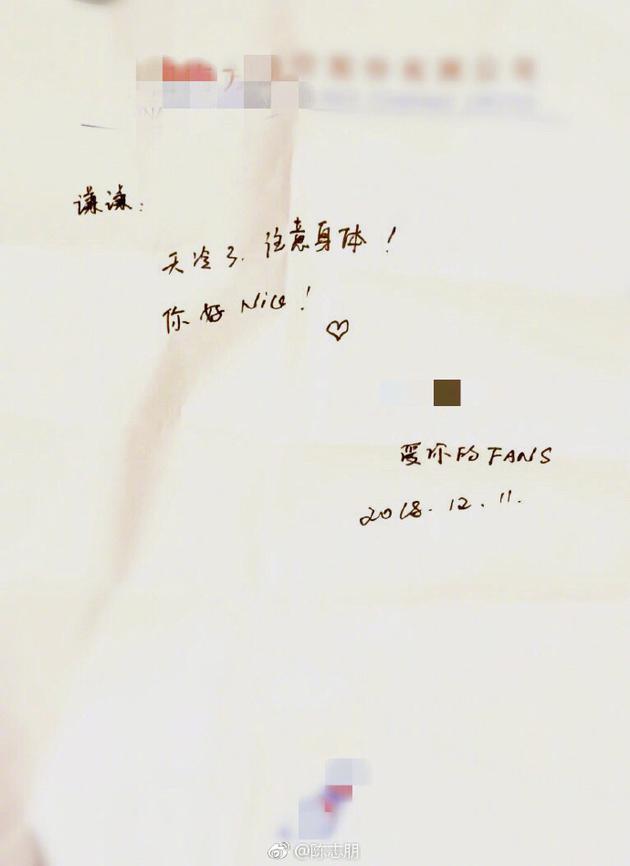 谦谦：
天冷了.注意身体！
你好Nice！
爱你的FANS
2018.12.11.
@陈志朋